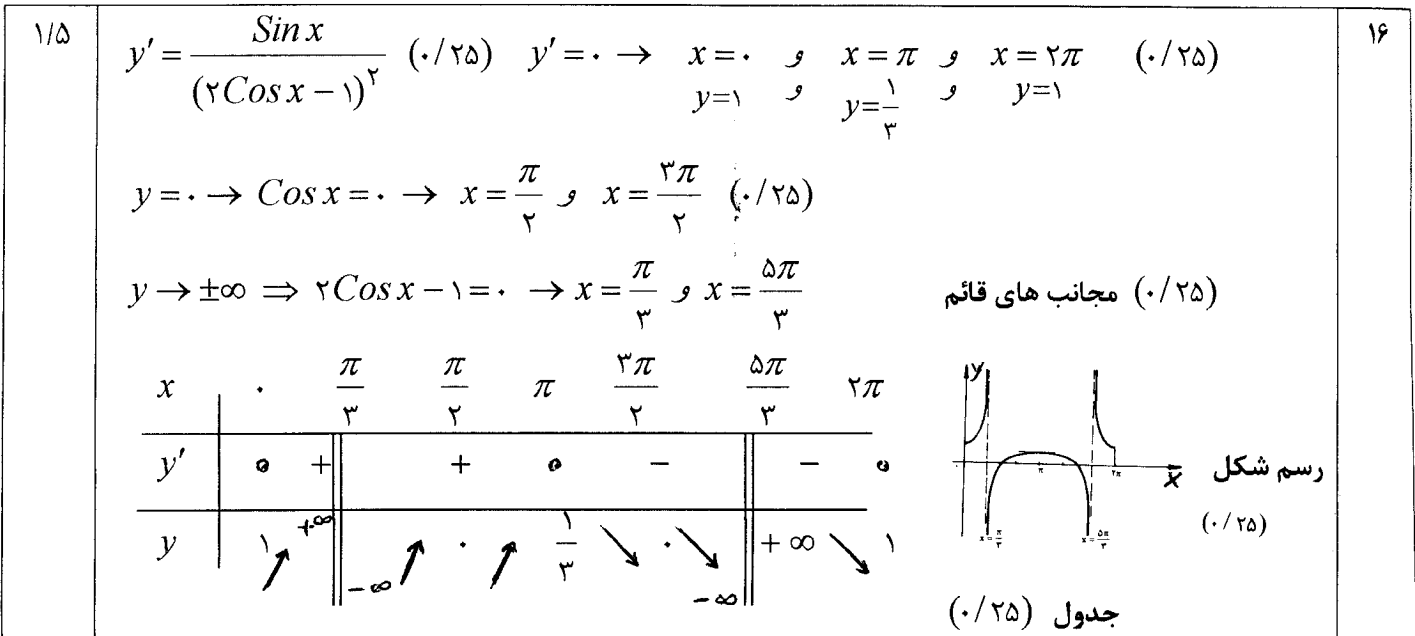 ۱۶
۱/۵
y′ = Sin x / (۲Cos x − ۱)^۲ (۰/۲۵) y′ = ۰ → x = ۰ و x = π و x = ۲π (۰/۲۵)
y=۱ و y=۱/۳ و y=۱
y = ۰ → Cos x = ۰ → x = π/۲ و x = ۳π/۲ (۰/۲۵)
y → ±∞ ⇒ ۲Cos x − ۱ = ۰ → x = π/۳ و x = ۵π/۳ (۰/۲۵) مجانب های قائم
x ۰ π/۳ π/۲ π ۳π/۲ ۵π/۳ ۲π
y′ ۰ + || + ۰ − || − ۰
y ۱ ↗ +∞ || −∞ ↗ ۰ ↗ ۱/۳ ↘ ۰ ↘ −∞ || +∞ ↘ ۱
y
π ۲π x
x = π/۳ x = ۵π/۳
رسم شکل
(۰/۲۵)
جدول (۰/۲۵)